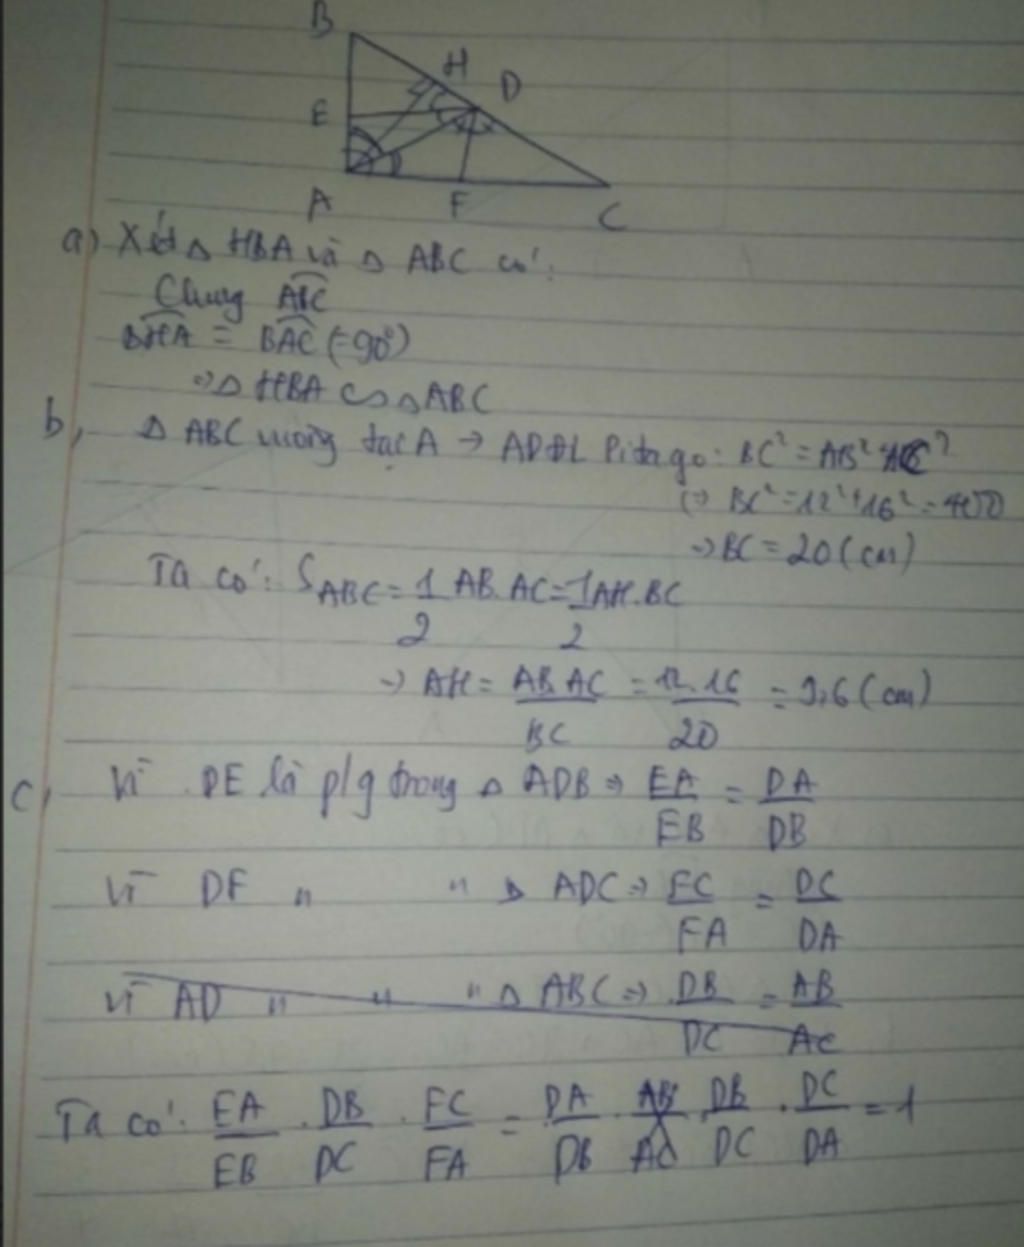 B
H
D
E
A
F
C
a) Xét △ HBA và △ ABC có:
Chung ABC
BHA = BAC (=90°)
=> △ HBA ∽ △ ABC
b, △ ABC vuông tại A → ADĐL Pitago: BC² = AB² + AC²
(=> BC² = 12² + 16² = 400
=> BC = 20 (cm)
Ta có: S ABC = 1/2 AB. AC = 1/2 AH. BC
→ AH = AB.AC/BC = 12.16/20 = 9,6 (cm)
c, Vì DE là p/g trong △ ADB => EA/EB = DA/DB
Vì DF " " △ ADC => FC/FA = DC/DA
Vì AD " " " △ ABC => DB/DC = AB/AC
Ta có: EA/EB . DB/DC . FC/FA = DA/DB . AB/AC . DB/DC . DC/DA = 1